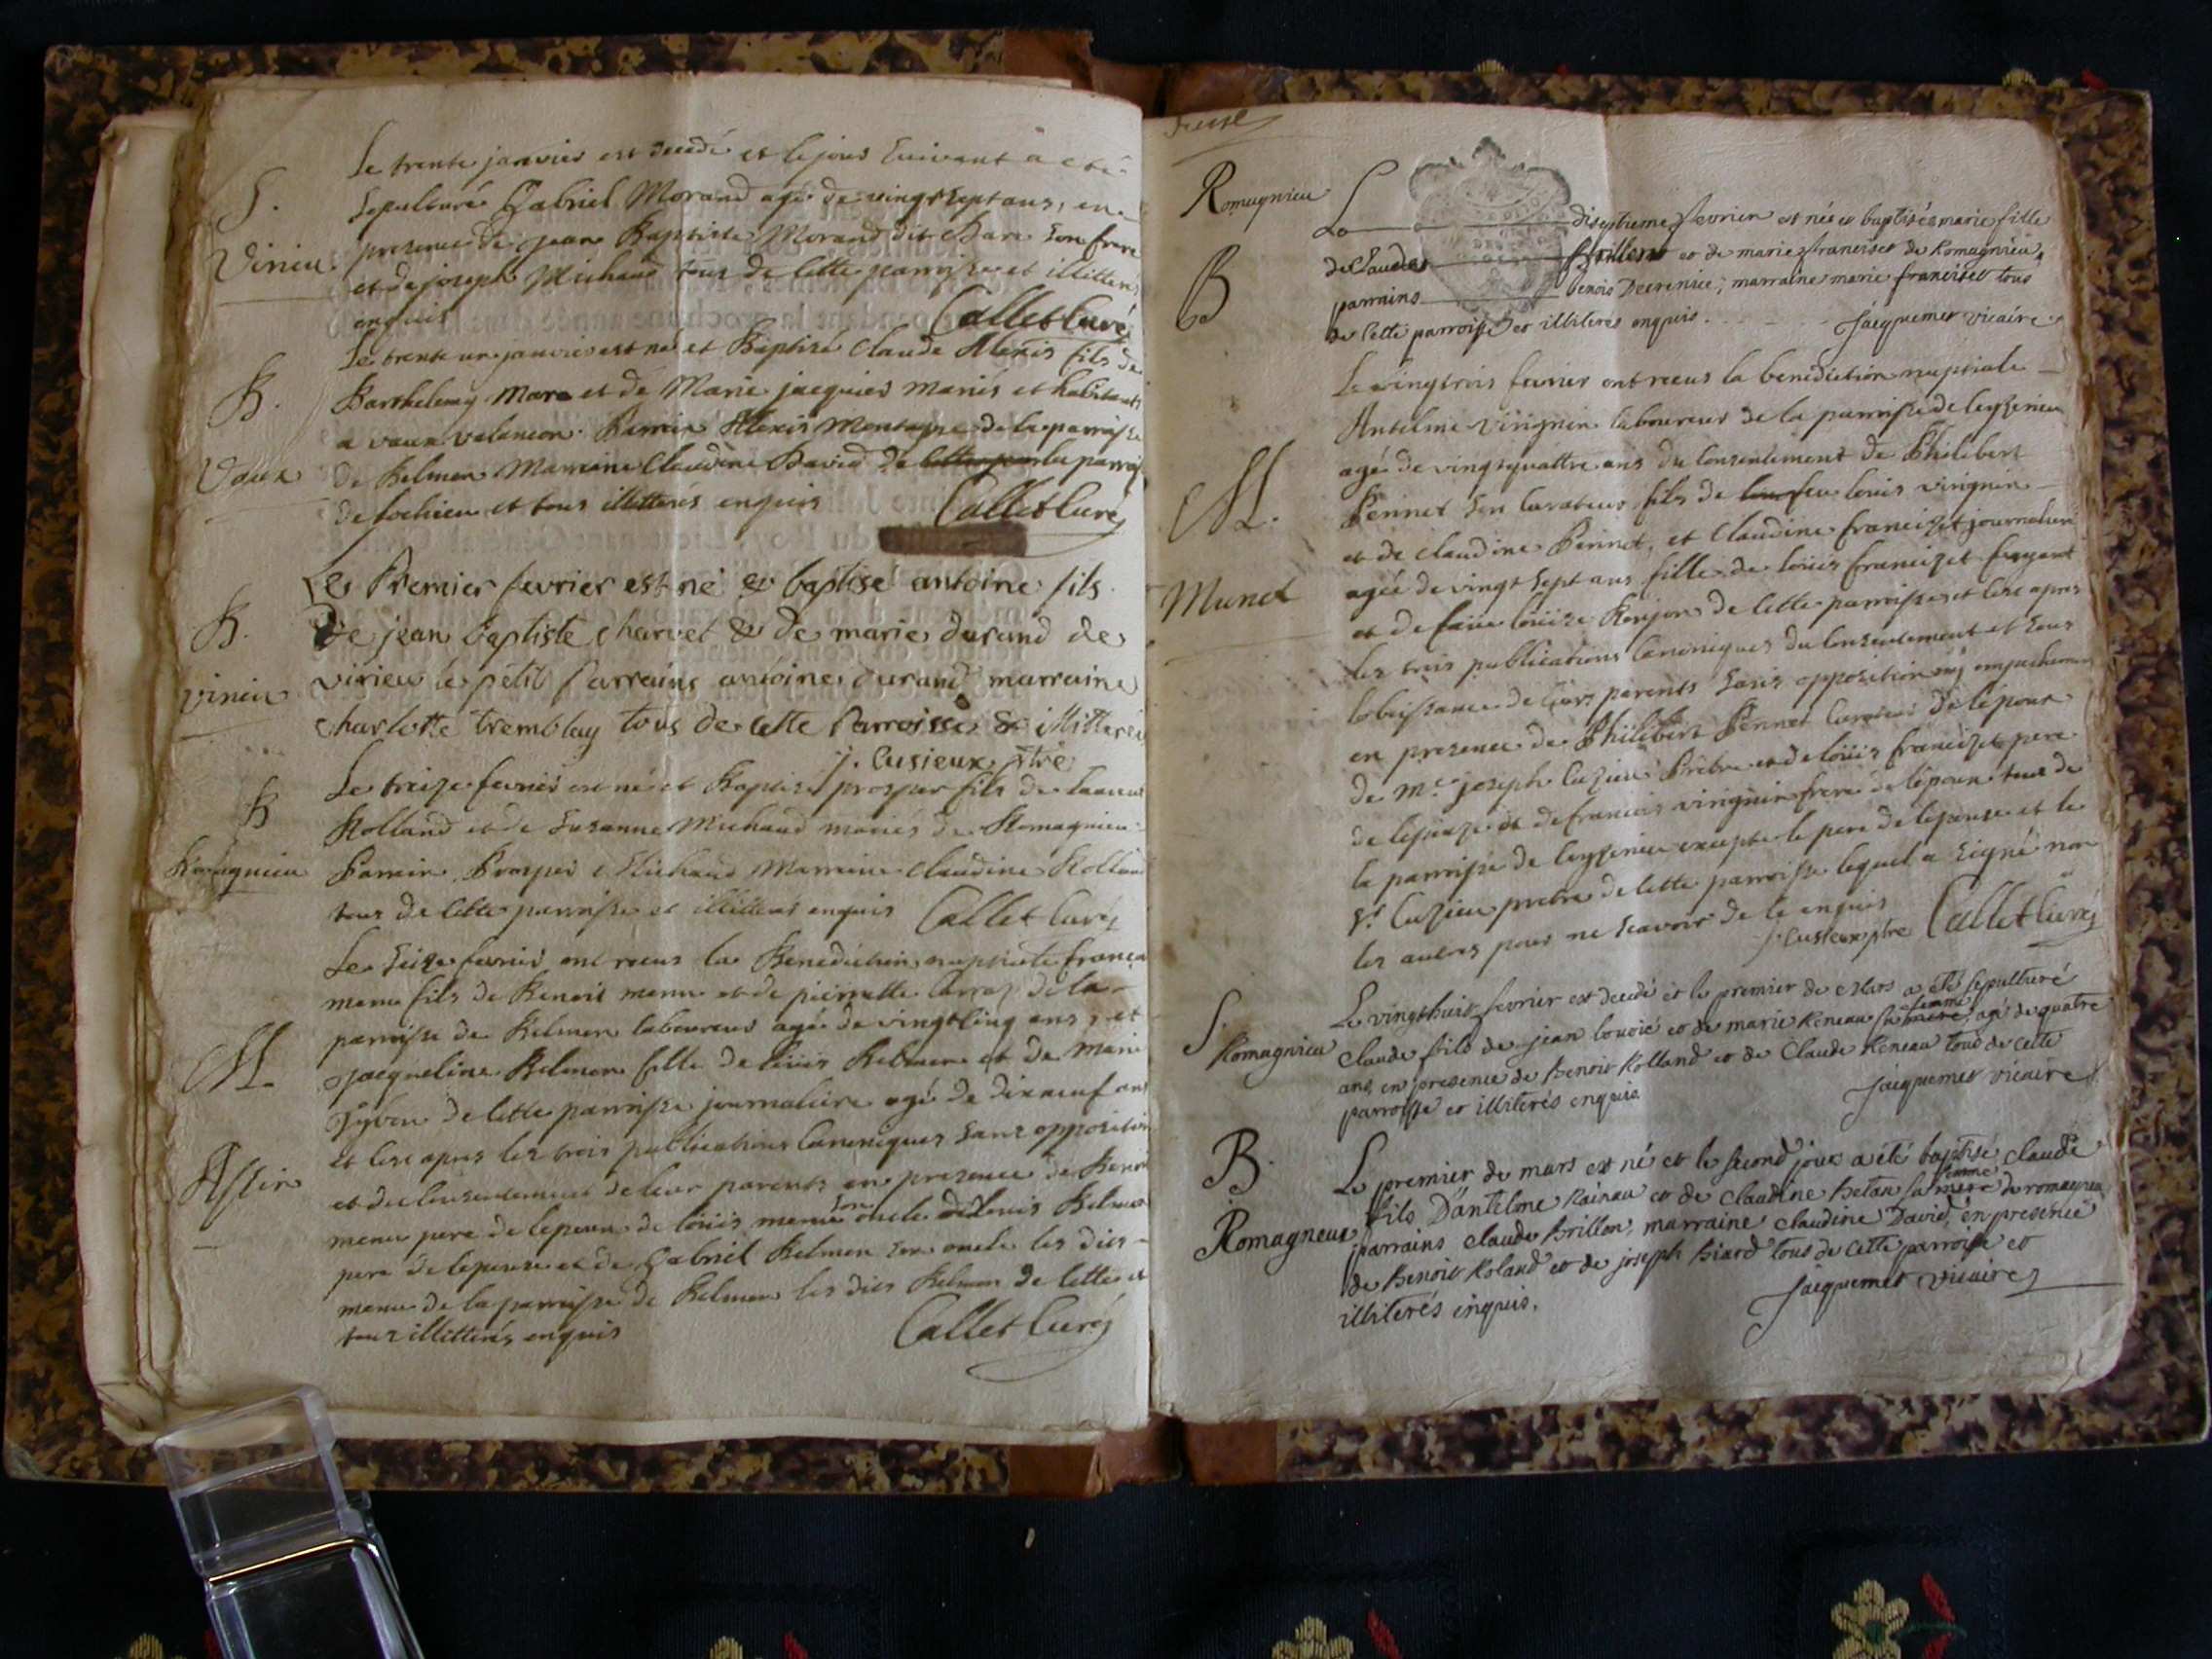 Le trente janvier est decedé et le jour suivant a eté
S.
sepulturé Gabriel Morand agé de vingt sept ans, en
Virieu
presence de jean Baptiste Morand dit son frere
et de joseph Michaud tous de cette parroisse et illitterés
enquis
Callet Curé
Le trente un janvier est né et Baptisé Claude Alexis fils de
B.
Barthelemy Mare et de Marie jacquier mariés et habitants
a vaux Parrain Alexis Montagne de la parroisse
Vaux
de Belmon Marraine Claudine David de la parroisse
de lochieu et tous illitterés enquis
Callet Curé
Le Premier fevrier est né & baptisé antoine fils
B.
De jean baptiste charvet & de marie durand de
Virieu
virieu le petit Parrains antoine durand marraine
charlotte tremblay tous de cette Parroisse & illitterés
j. Cusieux ptre
Le treize fevrier est né et Baptisé prosper fils de
B
Rolland et de Susanne Michaud mariés de Romagnieu
Romagnieu
Parrain Prosper Michaud Marraine Claudine Rolland
tous de cette parroisse et illitterés enquis
Callet Curé
Le Seize fevrier ont receus la Benediction nuptiale
menu fils de Benoit menu et de pierrette de la
parroisse de Belmon laboureur agé de vingt cinq ans, et
M
jacqueline Belmon fille de louis Belmon et de Marie
de cette parroisse journaliere agé de dix neuf ans
et ce apres les trois publications Canoniques sans opposition
Assin
et du consentement de leur parents en presence de Benoit
menu pere de lepoux de louis menu son oncle de louis Belmon
pere de lepouse et de Gabriel Belmon son oncle les dits
menu de la parroisse de Belmon les dits Belmon de cette et
tous illitterés enquis
Callet Curé
Romagnieu
Le diseptieme fevrier est née et baptisée marie fille
de Claude Brillon et de marie franciset de Romagnieu,
B
parrains benois Decrenice, marraine marie franciset tous
de cette parroisse et illiteres enquis.
jacquemet vicaire
Le vingtrois fevrier ont receus la benediction nuptiale
Antelme Viringnin laboureur de la parroisse de leyssieu
agé de vingt quattre ans du consentement de Philibert
M.
Pennet son curateur fils de feu louis viringnin
et de claudine Pennet, et Claudine francizet journaliere
Munet
agée de vingt sept ans fille de louis francizet
et de louise de cette parroisse et ce apres
les trois publications Canoniques du consentement et sous
lobeissance de leurs parents sans opposition ny empechement
en presence de Philibert Pennet curateur de lepoux
de Mre joseph Cuzieu Prêtre et de louis francizet pere
de lepouse et de francois viringnin frere de lepoux tous de
la parroisse de leyssieu excepté le pere de lepouse et le
sr. Cuzieu pretre de cette parroisse lequel a signé non
les autres pour ne scavoir de ce enquis
j. Cusieux ptre
Callet Curé
Le vingthuit fevrier est decedé et le premier de Mars a eté sepulturé
S.
Romagnieu
claude fils de jean bovoié et de marie Reneau sa femme, agé de quatre
ans, en presence de Benoit Rolland et de Claude Reneau tous de cette
parroisse et illiterés enquis
jacquemet vicaire
B.
Le premier de mars est né et le second jour a été baptisé claude
fils D'antelme Raineau et de claudine Betan sa femme de romagnieu
Romagneux
parrains claude Brillon, marraine claudine David, en presence
de Benoit Roland et de joseph Biard tous de cette parroisse et
illiterés enquis.
jacquemet vicaire